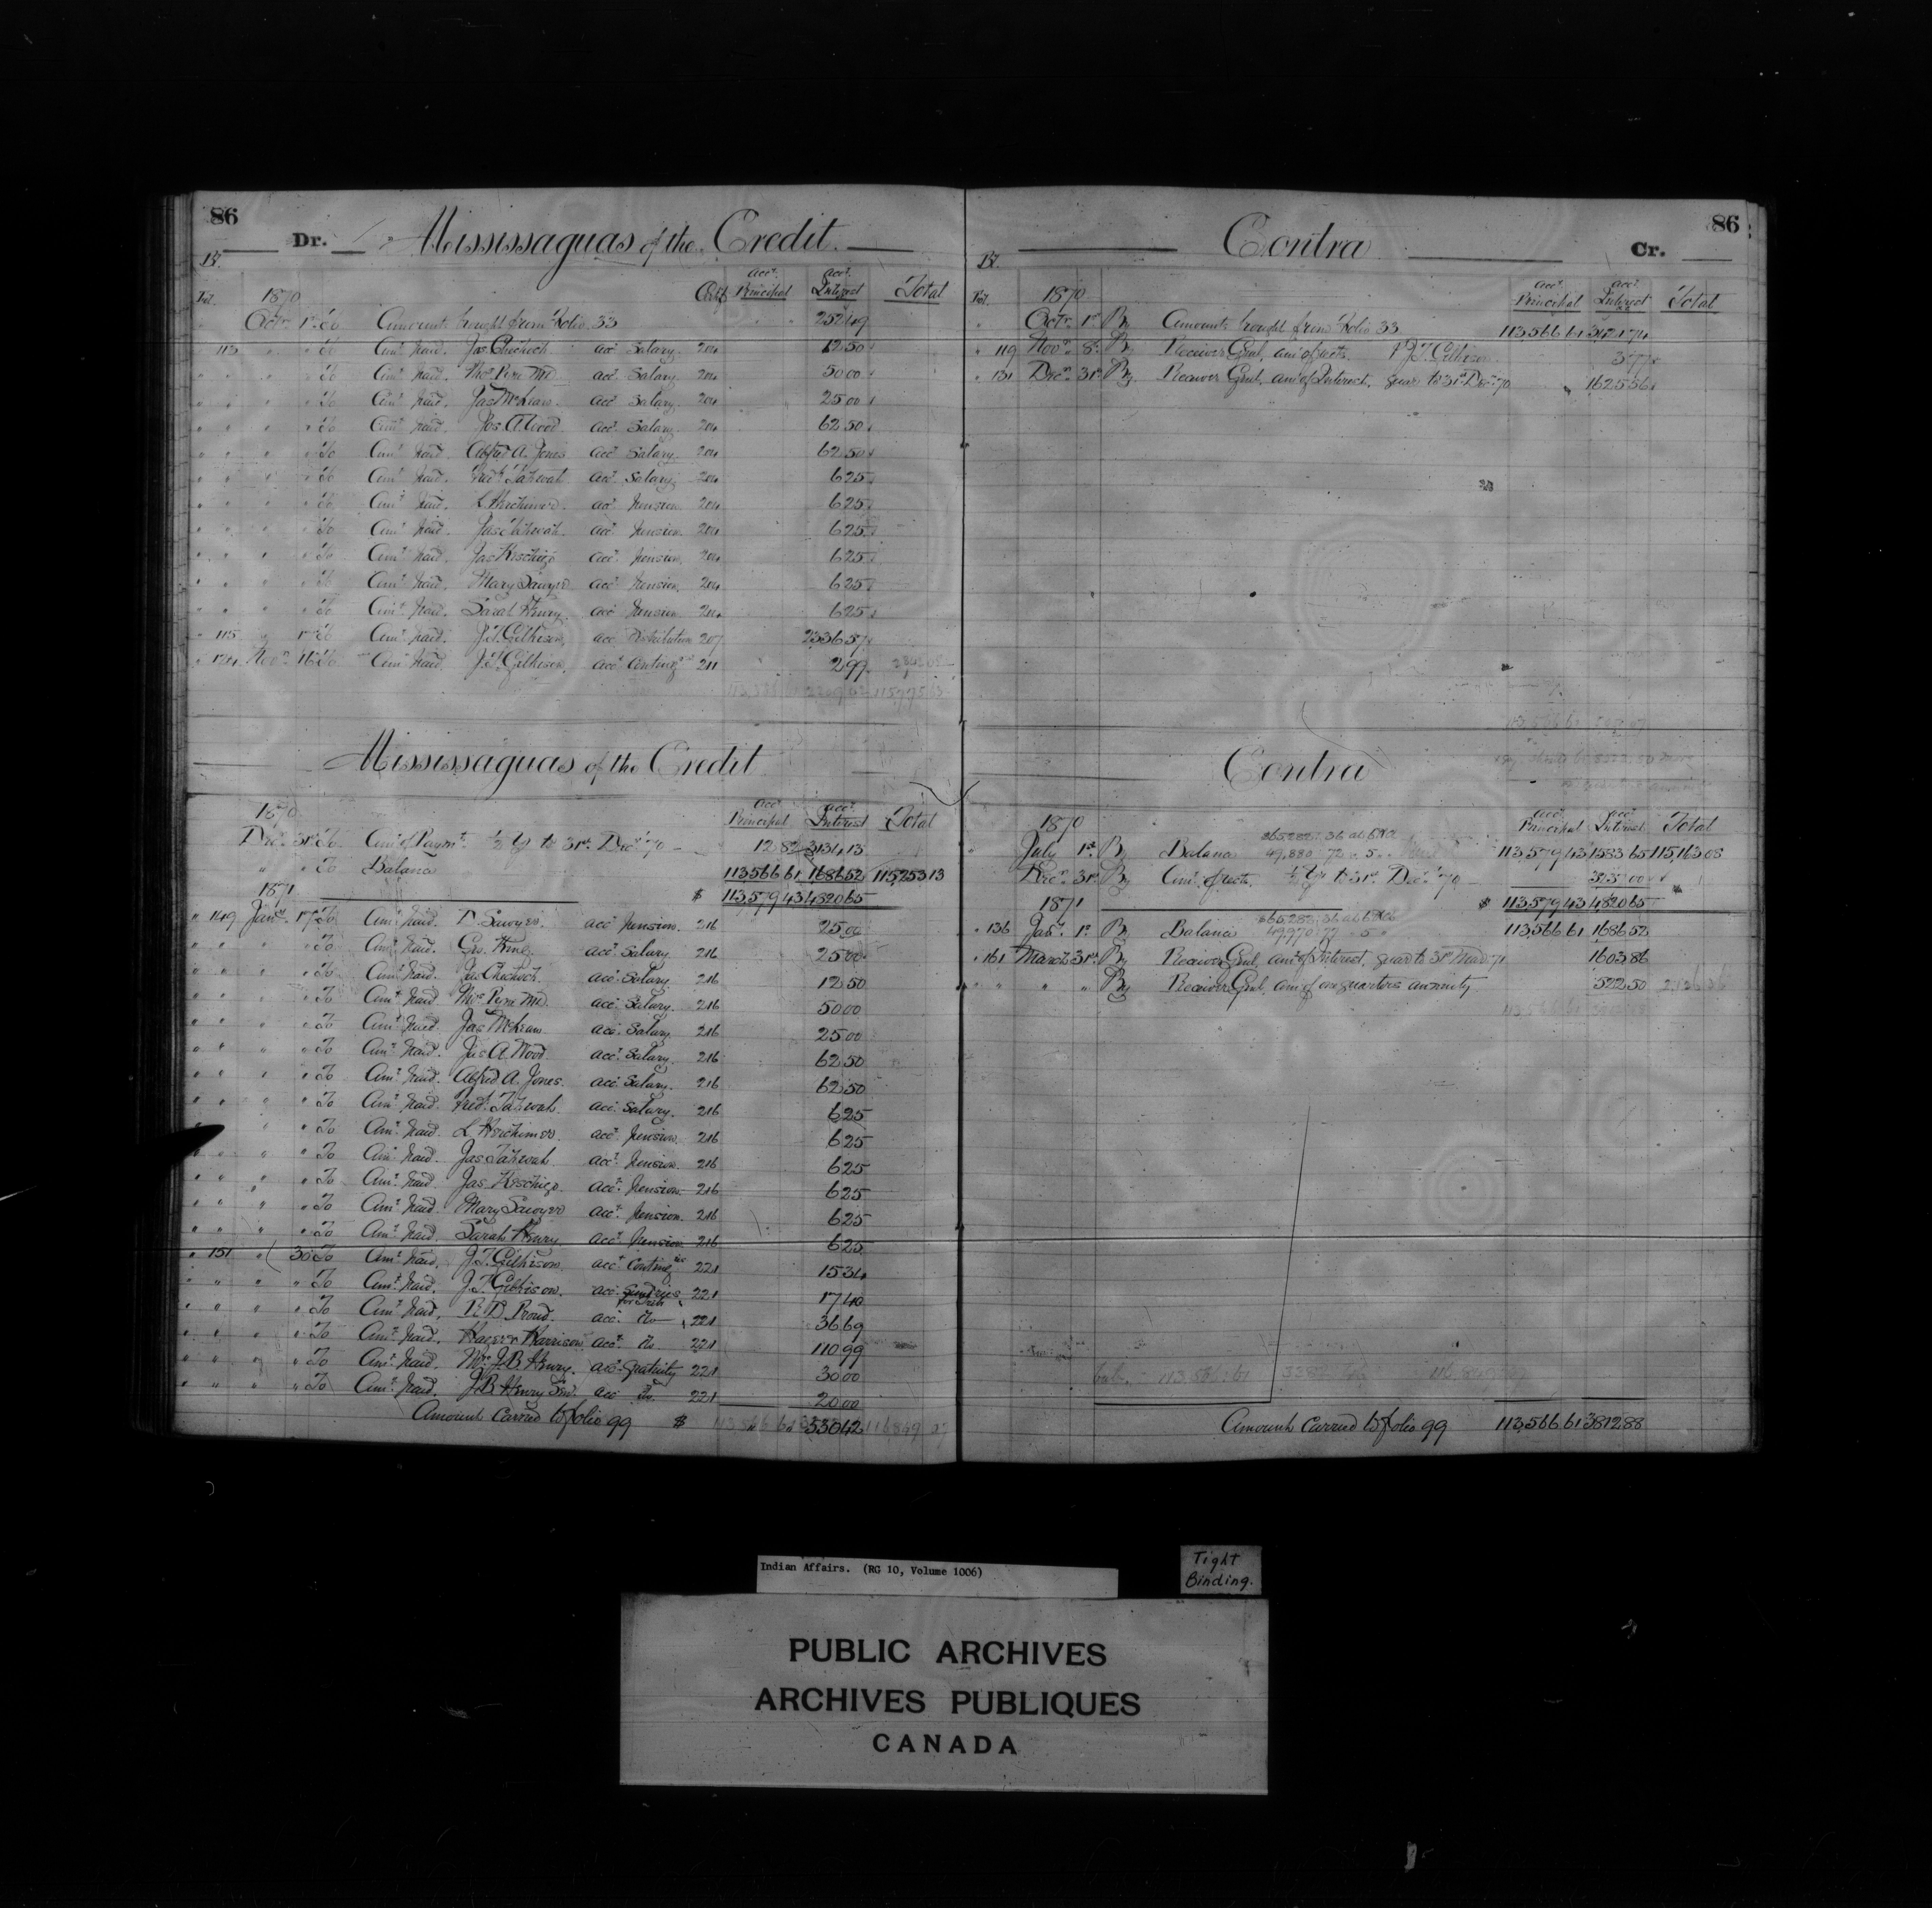 86
Dr. Mississaguas of the Credit
Bk. Fol. 1870 Certf Acct. Principal Acct. Interest Total
Octr. 1st To Amounts brought from Folio 33 252 49
113 " " To Amt. paid. Jas. Chechock acct. Salary. 204 12 50
" " " To Amt. paid. Thos. Pyne MD. acct. Salary 204 50 00
" " " To Amt. paid. Jas. McLean. acct. Salary. 204 25 00
" " " To Amt. paid. Jas. A. Wood. acct. Salary. 204 62 50
" " " To Amt. paid. Alfred A. Jones acct. Salary. 204 62 50
" " " To Amt. paid. acct. Salary. 204 6 25
" " " To Amt. paid. acct. pension. 204 6 25
" " " To Amt. paid. acct. pension. 204 6 25
" " " To Amt. paid. Jas. Keschigo acct. pension. 204 6 25
" " " To Amt. paid. Mary Sawyer acct. pension. 204 6 25
" " " To Amt. paid. Sarah Henry acct. pension 204 6 25
" 115 " 1st To Amt. paid. J.T. Gilkison, acct. Distribution 207 2336 57
" 124 Novr. 16 To Amt. paid. J.T. Gilkison, acct. Conting 211 2 99
Mississaguas of the Credit
1870 Acct. Principal Acct. Interest Total
Decr. 31st To Amt. of Paymts. ½ Yr to 31st. Decr. '70 12 82 3134 13
" " To Balance 113,566 61 1686 52 115,253 13
$ 113,579 43 4820 65
1871
" 149 Jany. 17 To Amt. paid. D. Sawyer. acct. pension. 216 25 00
" " " To Amt. paid. Geo. King acct. Salary. 216 25 00
" " " To Amt. paid. Jas. Chechock. acct. Salary 216 12 50
" " " To Amt. paid Thos. Pyne MD. acct. Salary 216 50 00
" " " To Amt. paid Jas. McLean acct. Salary. 216 25 00
" " " To Amt. paid. Jas. A. Wood. acct. Salary. 216 62 50
" " " To Amt. paid. Alfred A. Jones. acct. Salary. 216 62 50
" " " To Amt. paid. acct. Salary. 216 6 25
" " " To Amt. paid. acct. pension. 216 6 25
" " " To Amt. paid. acct. pension. 216 6 25
" " " To Amt. paid. Jas. Keschigo. acct. pension 216 6 25
" " " To Amt. paid. Mary Sawyer acct. pension. 216 6 25
" " " To Amt. paid. Sarah Henry acct. pension 216 6 25
" 151 " 30 To Amt. paid. J.T. Gilkison acct. Conting 221 15 34
" " " " To Amt. paid. J.T. Gilkison. acct. Sundries 221 17 40
" " " " To Amt. paid. acct. do 221 36 69
" " " " To Amt. paid. Harrison acct. do. 221 110 99
" " " " To Amt. paid. Mrs. J.B. Henry. acct. gratuity 221 30 00
" " " " To Amt. paid. J.B. Henry Snr. acct. do. 221 20 00
Amount Carried to folio 99 $ 530 42
86
Contra Cr.
Bk. Fol. 1870 Acct. Principal Acct. Interest Total
" Octr. 1st By Amounts brought from Folio 33 113,566 61
" 119 Novr. 8 By Receiver Genl. amt. of rects. J.T. Gilkison 3 77
" 131 Decr. 31st By Receiver Genl. amt. of Interest, quar to 31st Decr. '70 " 1625 56
Contra
1870 Acct. Principal Acct. Interest Total
July 1st. By Balance 113,579 43 1583 65 115,163 08
Decr. 31st. By Amt. of rects. ½ Yr to 31st. Decr. '70 3237 00
$ 113,579 43 4820 65
1871
" 136 Jany. 1st By Balance 113,566 61 1686 52
" 161 March 31st By Receiver Genl. amt. of Interest, quar to 31st March '71 1603 86
" " " " By Receiver Genl. amt. of one quarters annuity 522 50
Amount Carried to folio 99 113,566 61 3812 88
Indian Affairs. (RG 10, Volume 1006)
Tight
Binding.
PUBLIC ARCHIVES
ARCHIVES PUBLIQUES
CANADA